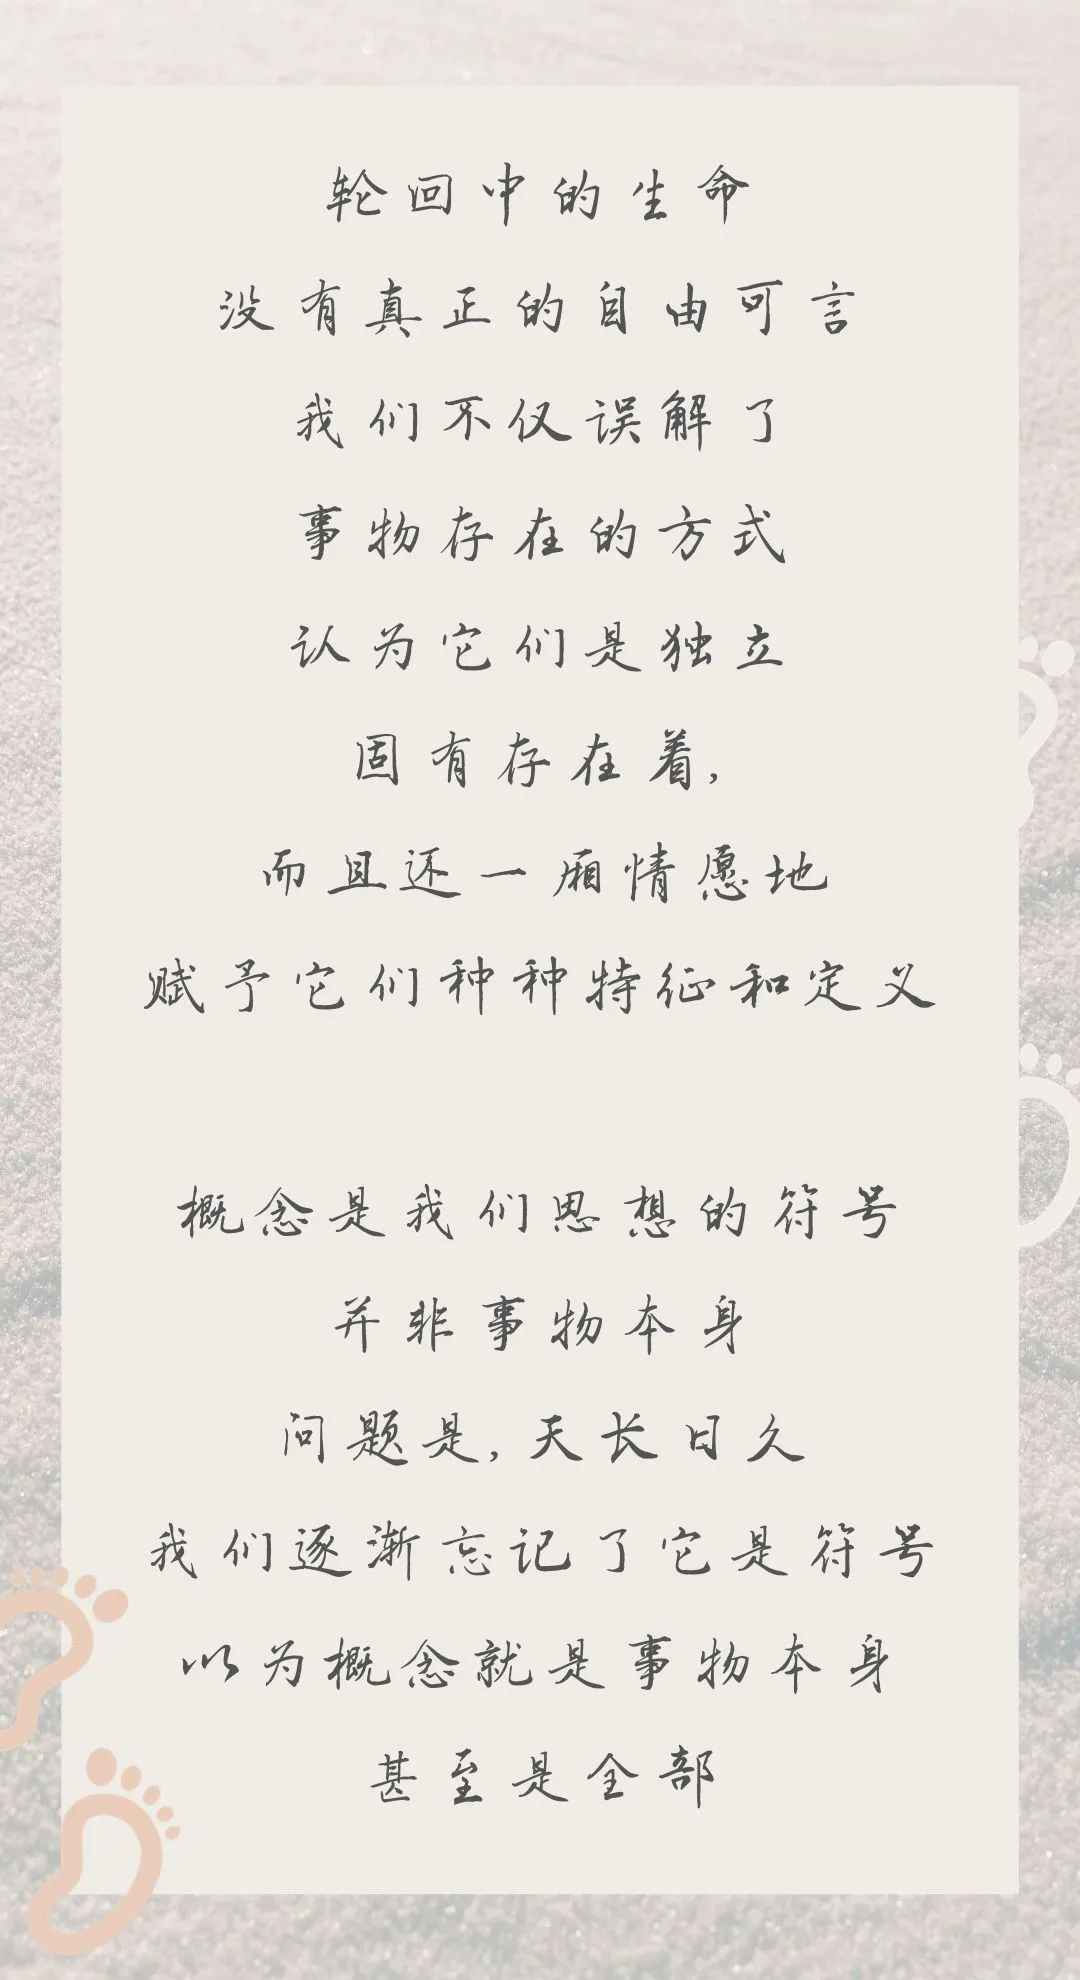 轮回中的生命
没有真正的自由可言
我们不仅误解了
事物存在的方式
认为它们是独立
固有存在着,
而且还一厢情愿地
赋予它们种种特征和定义
概念是我们思想的符号
并非事物本身
问题是,天长日久
我们逐渐忘记了它是符号
以为概念就是事物本身
甚至是全部